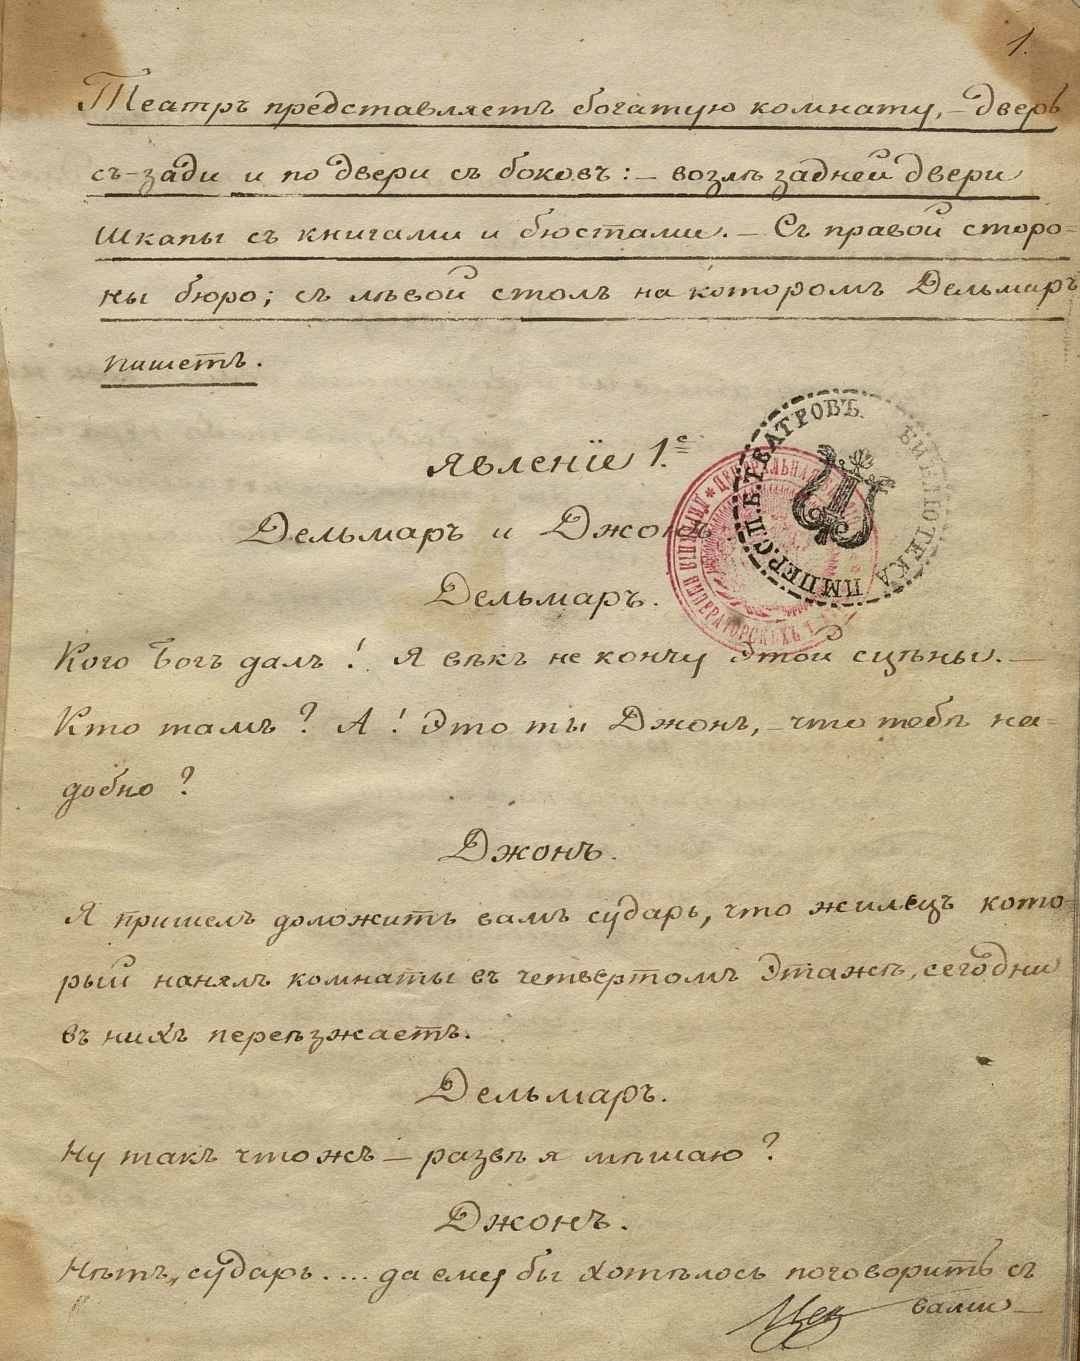 1.
Театръ представляетъ богатую комнату, — дверь
съ-зади и по двери съ боковъ: — возлѣ задней двери
Шкапы съ книгами и бюстами. — Съ правой сторо=
ны бюро; съ лѣвой столъ на которомъ Дельмаръ
пишетъ.
Явленіе 1.е
Дельмаръ и Джонъ
Дельмаръ.
Кого Богъ далъ! Я вѣкъ не кончу Этой сцѣны. —
Кто тамъ? А! Это ты Джонъ, — что тебѣ на=
добно?
Джонъ.
Я пришелъ доложить вамъ сударь, что жилецъ кото=
рый нанялъ комнаты въ четвертомъ Этажѣ, сегодни
въ нихъ переѣзжаетъ.
Дельмаръ.
Ну такъ чтожъ — развѣ я мѣшаю?
Джонъ.
Нѣтъ, сударь.... да ему бы хотѣлось поговорить съ
вами —
БИБЛІОТЕКА ИМПЕР. С.П.Б. ТЕАТРОВЪ
ЦЕНТРАЛЬНАЯ ИМПЕРАТОРСКИХЪ